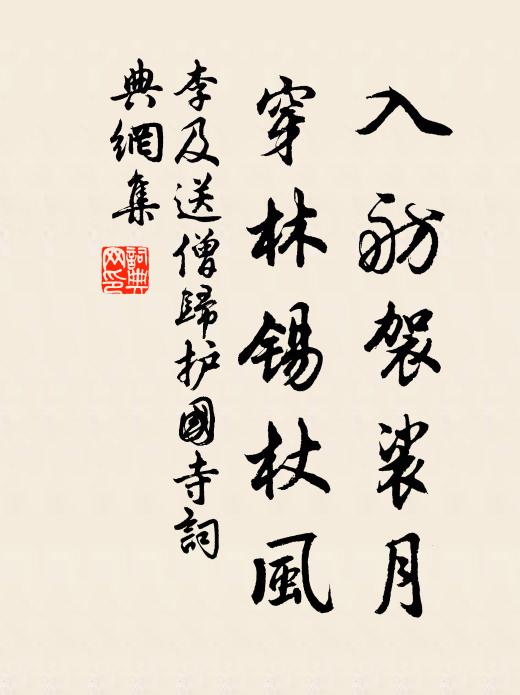 入舫袈裟月
穿林锡杖風
李及送僧歸护國寺詞
典網集
詞典
网印